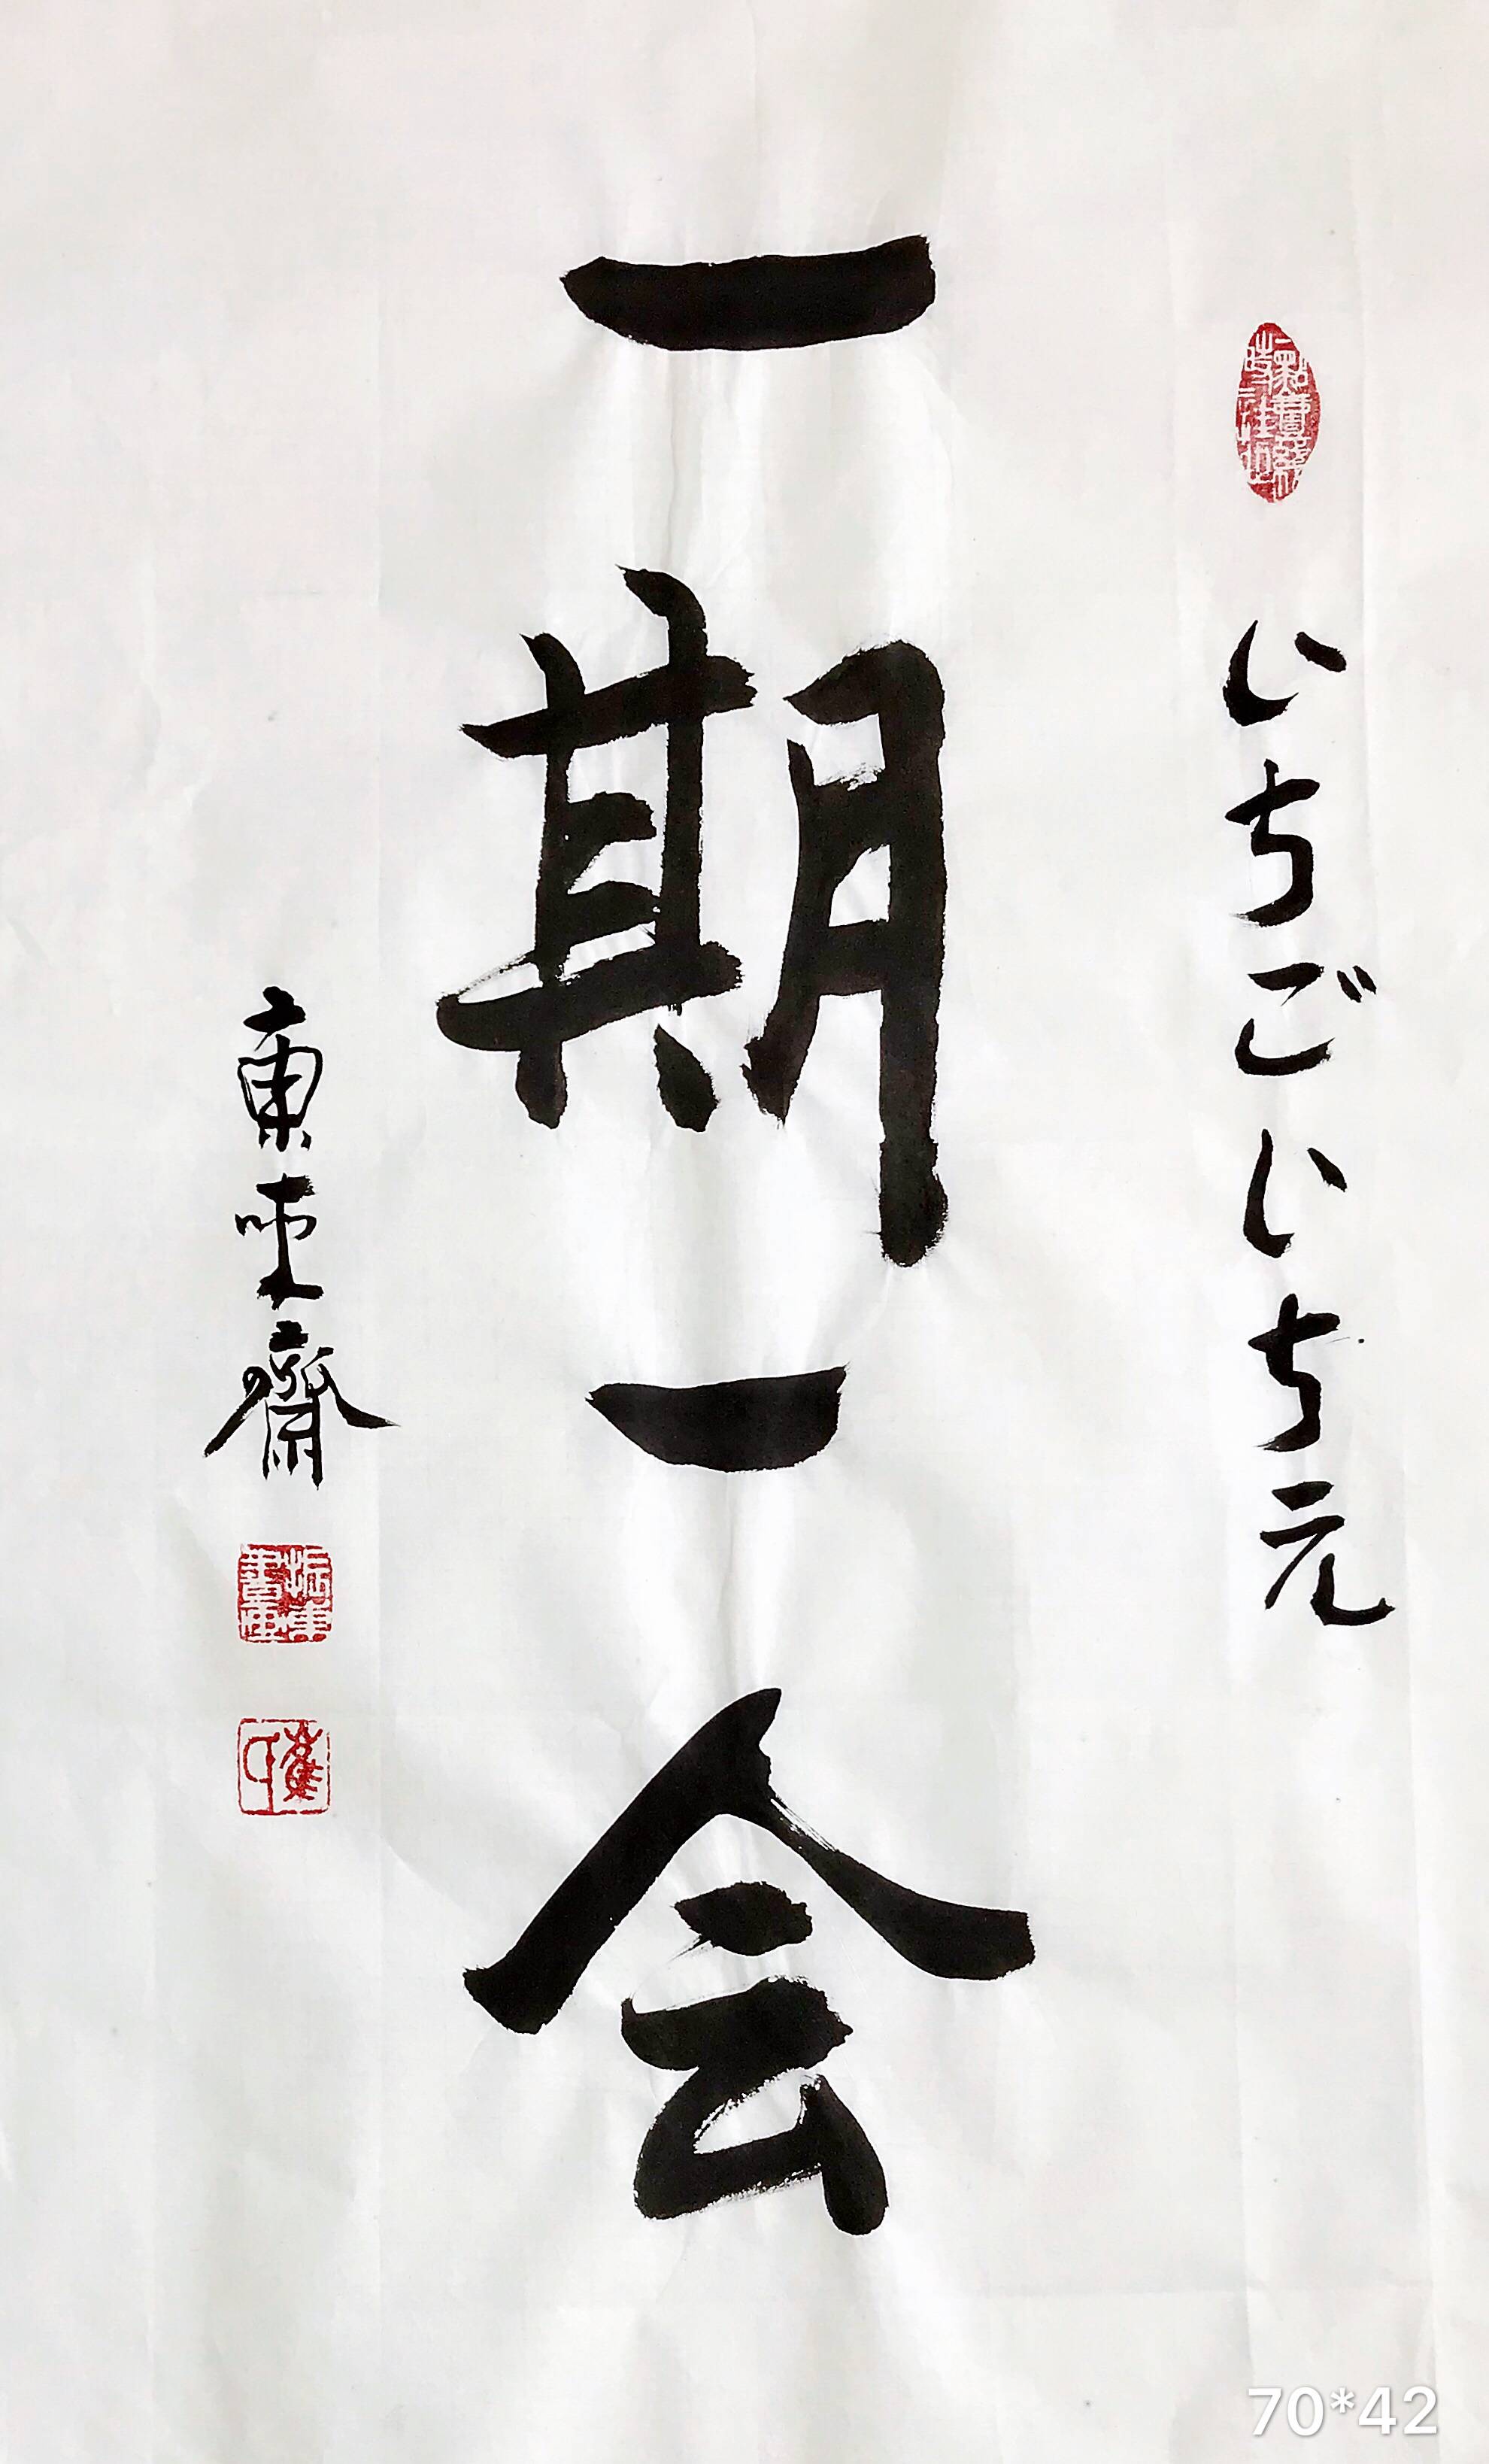 いちごいちえ
一期一会
東來齋
70*42